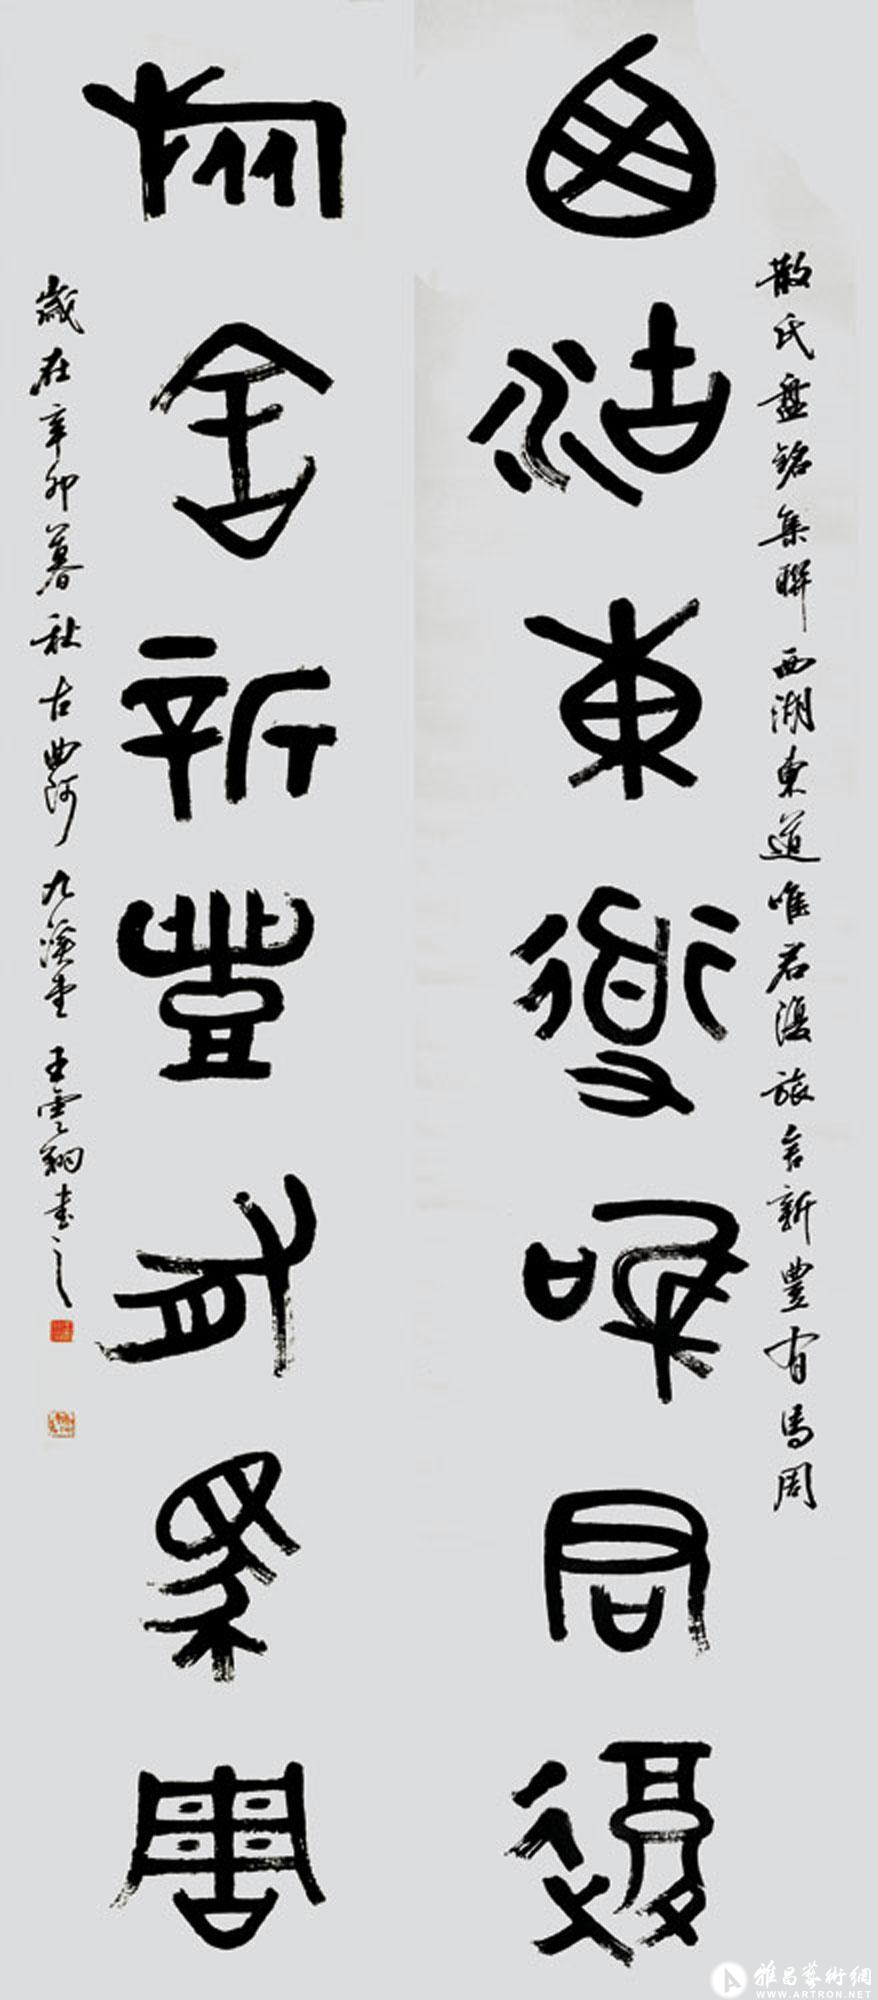 散氏盤銘集聯 西湖東道唯君復旅舍新豐有馬周
西湖東道唯君復
旅舍新豐有馬周
歲在辛卯暮秋古曲阿九溪堂王雲翔書之
雅昌藝術網
WWW.ARTRON.NET